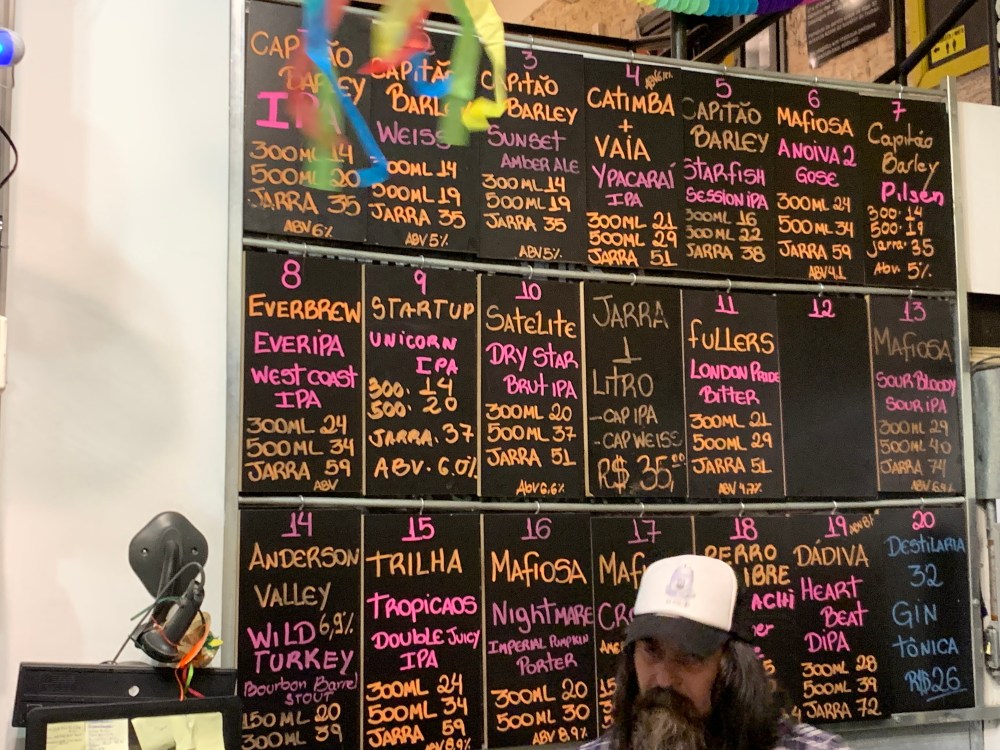 CAPITÃO
BARLEY
IPA
300ML 14
500ML 20
JARRA 35
ABV 6%
2
CAPITÃO
BARLEY
WEISS
300ML 14
500ML 19
JARRA 35
ABV 5%
3
CAPITÃO
BARLEY
SUNSET
AMBER ALE
300ML 14
500ML 19
JARRA 35
ABV 5%
4
CATIMBA
+
VAIA
YPACARAÍ
IPA
300ML 21
500ML 29
JARRA 51
5
CAPITÃO
BARLEY
STARFISH
SESSION IPA
300ML 16
300ML 22
JARRA 38
6
MAFIOSA
ANOIVA 2
GOSE
300ML 24
500ML 34
JARRA 59
ABV 4,1
7
Capitão
Barley
Pilsen
300. 14
500. 19
Jarra. 35
Abv. 5%
8
EVERBREW
EVERIPA
WEST COAST
IPA
300ML 24
500ML 34
JARRA 59
ABV
9
STARTUP
UNICORN
IPA
300. 14
500. 20
JARRA. 37
ABV. 6.0%
10
SATELITE
DRY STAR
BRUT IPA
300ML 20
500ML 37
JARRA 51
Abv 6,6%
JARRA
1
LITRO
-CAP IPA
-CAP WEISS
R$ 35,00
11
FULLERS
LONDON PRIDE
BITTER
300ML 21
500ML 29
JARRA 51
ABV 4,7%
12
13
MAFIOSA
SOUR BLOODY
SOUR IPA
300ML 29
500ML 40
JARRA 74
14
ANDERSON
VALLEY
WILD 6,9%
TURKEY
Bourbon Barrel
STOUT
150ML 20
300ML 39
15
TRILHA
TROPICAOS
DOUBLE JUICY
IPA
300ML 24
500ML 34
JARRA 59
ABV 8,9%
16
MAFIOSA
NIGHTMARE
IMPERIAL PUMPKIN
PORTER
300ML 20
500ML 30
ABV 8,9%
17
18
PERRO
19
DÁDIVA
HEART
BEAT
DIPA
300ML 28
500ML 39
JARRA 72
20
DESTILARIA
32
GIN
TÔNICA
R$ 26